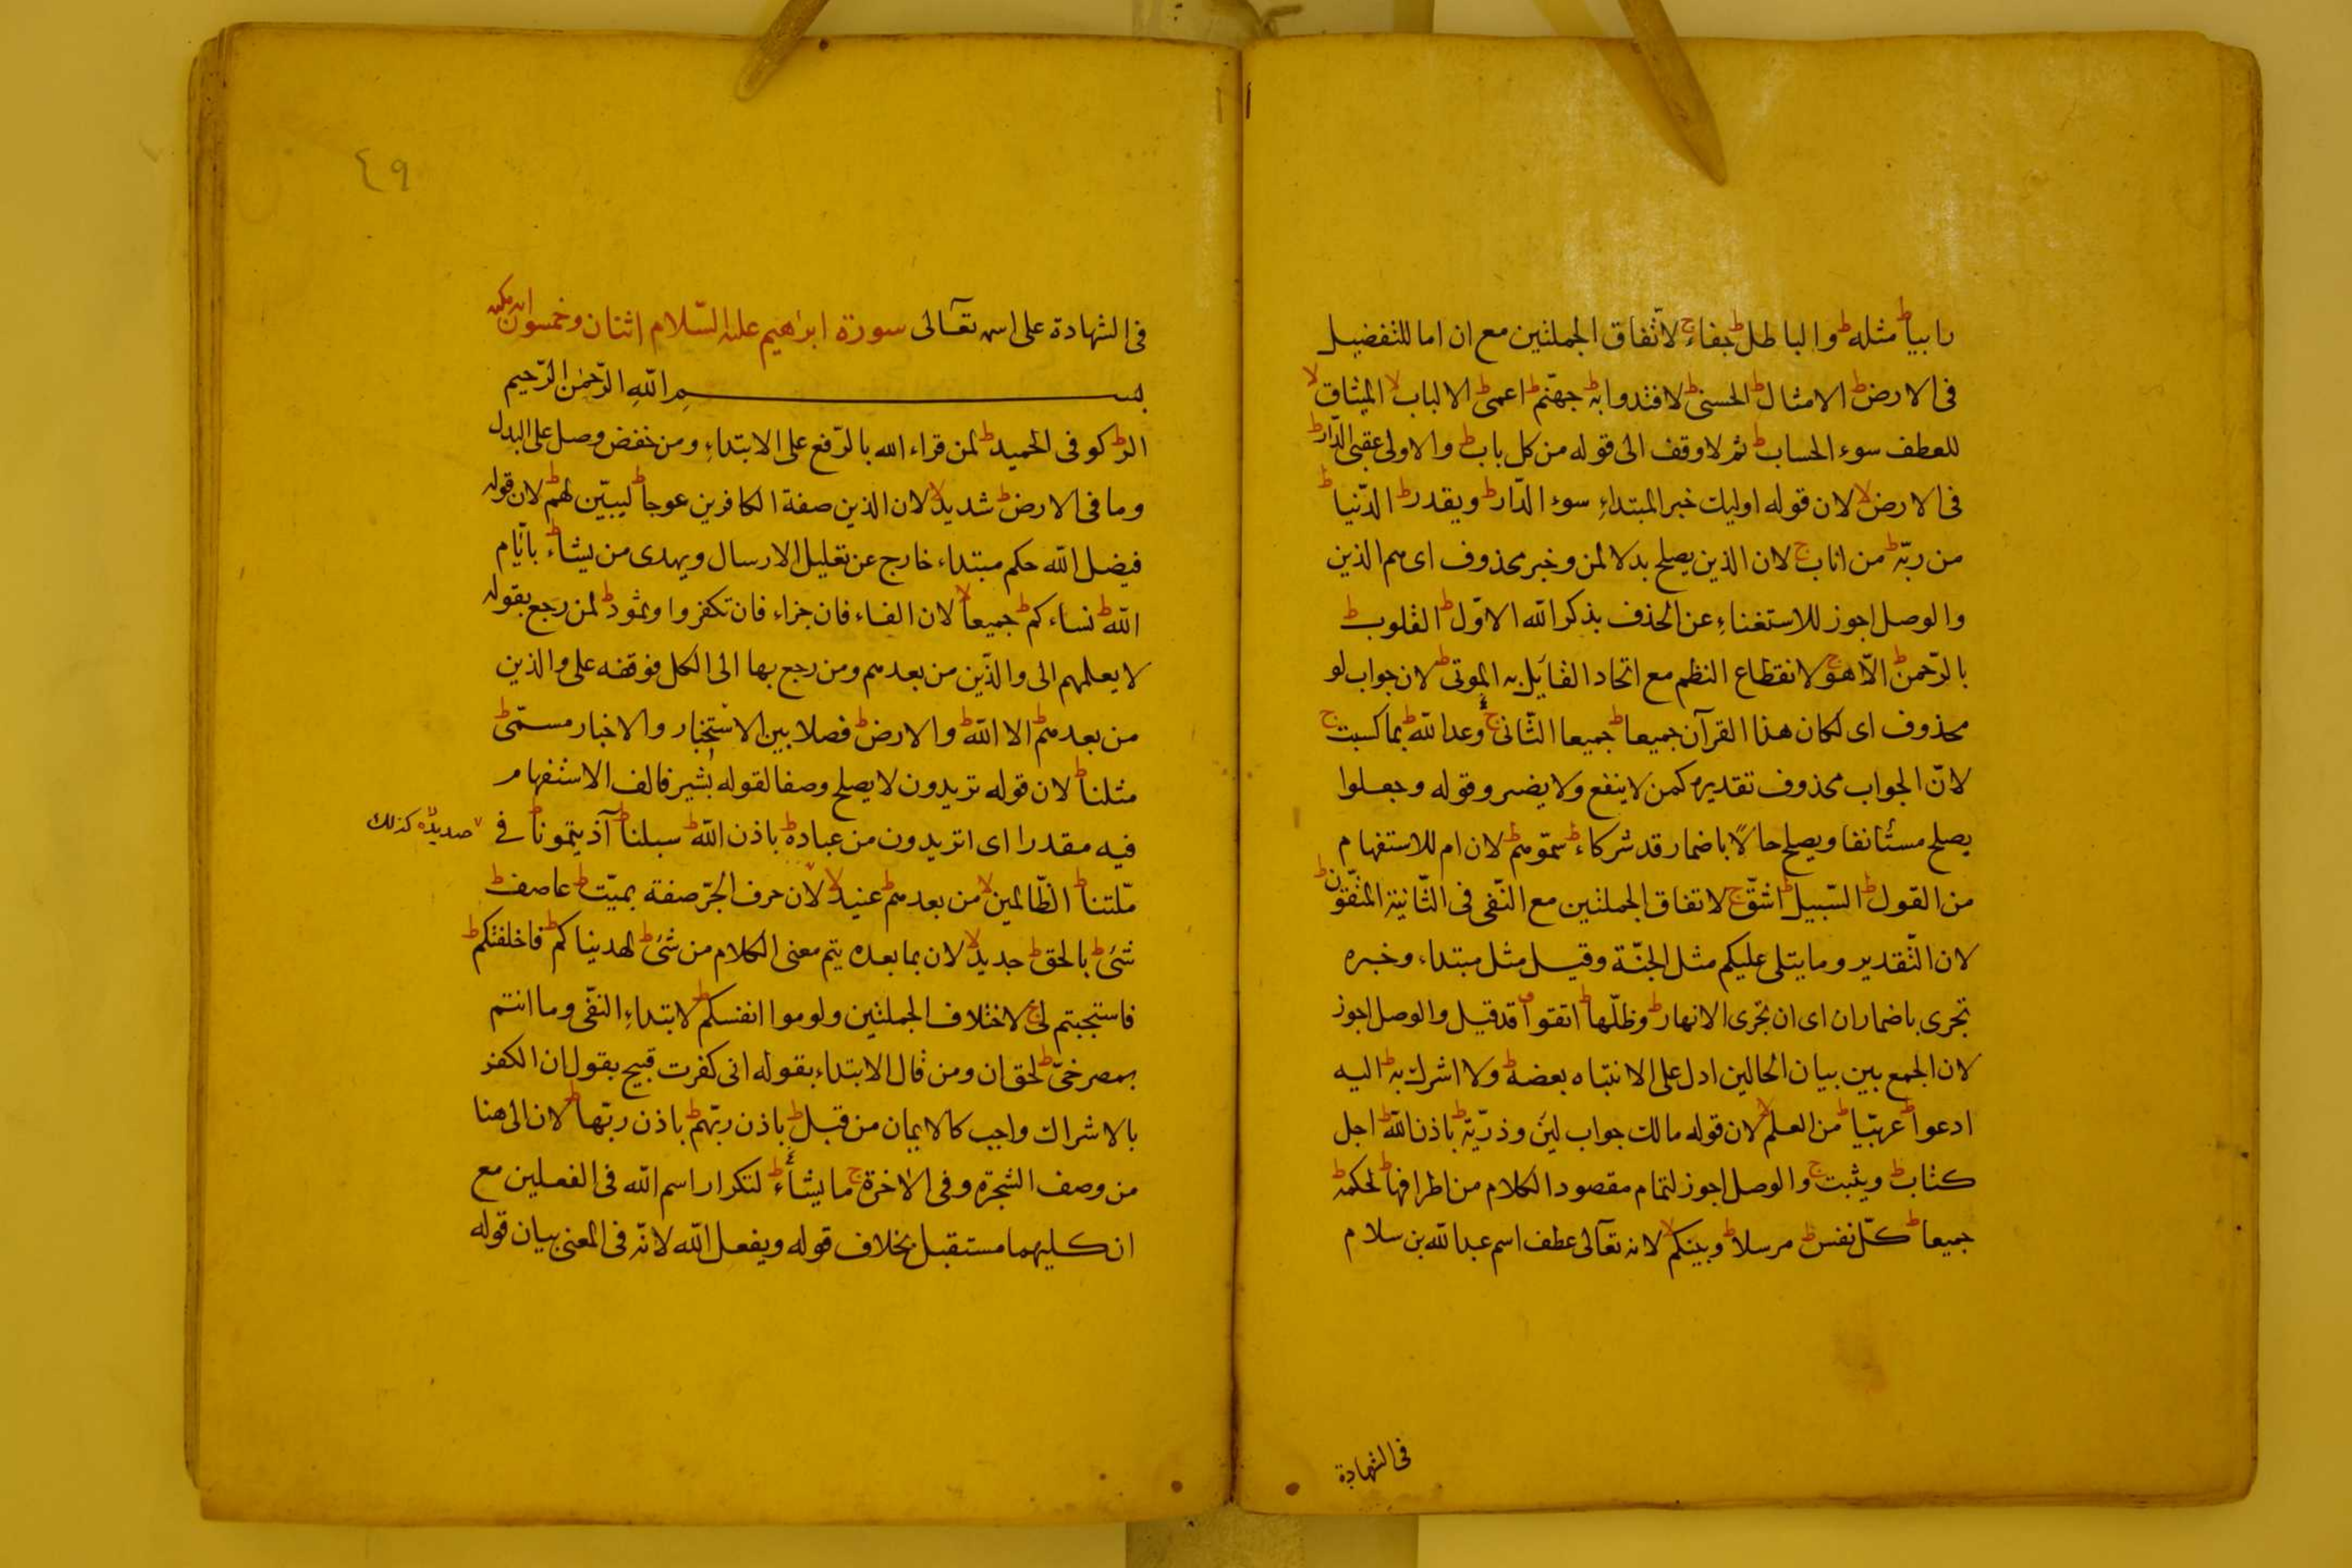 رابيا ط مثله ط والباطل ط جفاء ج لاتّفاق الجملتين مع ان اما للتفضيل
فى الارض ط الامثال ط الحسنى ط لافتدوا به ط جهنّم ط اعمى ط الالباب لا الميثاق لا
للعطف سوء الحساب ط ثم لا وقف الى قوله من كل باب ط والاولى عقبى الدّار ط
فى الارض لا لان قوله اوليك خبر المبتداء سوء الدّار ط ويقدر ط الدّنيا ط
من ربّه ط من اناب ج لان الذين يصلح بدلا لمن وخبر محذوف اى هم الذين
والوصل اجوز للاستغناء عن الحذف بذكر الله الاوّل ط القلوب ط
بالرّحمن ط الّا هو ج لانقطاع النظم مع اتحاد القايل به الموتى ط لان جواب لو
محذوف اى لكان هذا القرآن جميعا ط جميعا الثّانى ج وعد الله ط بما كسبت ج
لانّ الجواب محذوف تقديره كمن لا ينفع ولا يضر وقوله وجعلوا
يصلح مستأنفا ويصلح حالًا باضمار قد شركاء ط سمّوهم ط لان ام للاستفهام
من القول ط السّبيل ط اشقّ ج لاتفاق الجملتين مع النّفى فى الثّانية المتّقون ط
لان التّقدير وما يتلى عليكم مثل الجنّة وقيل مثل مبتداء وخبره
تجرى باضمار ان اى ان تجرى الانهار ط وظلّها ط اتقوا ق قد قيل والوصل اجوز
لان الجمع بين بيان الحالين ادل على الانتباه بعضه ط ولا اشرك به ط اليه
ادعوا ط عربيّا ط من العلم لا لان قوله مالك جواب لين وذرّيّة ط باذن الله ط اجل
كتاب ط ويثبت ج والوصل اجوز لتمام مقصود الكلام من اطرافها ط لحكمه ط
جميعا ط كلّ نفس ط مرسلا ط وبينكم لا لانه تعالى عطف اسم عبد الله بن سلام
فى الشهادة
٤٩
فى الشهادة على اسمه تعالى سورة ابرٰهيم عليه السّلام اثنتان وخمسون اية مكية
بسم الله الرّحمن الرّحيم
الر ط كوفى الحميد ط لمن قراء الله بالرّفع على الابتداء ومن خفض وصل على البدل
وما فى الارض ط شديد لا لان الذين صفة الكافرين عوجا ط ليبيّن لهم ط لان قوله
فيضل الله حكم مبتداء خارج عن تعليل الارسال ويهدى من يشاء ط بايّام
الله ط نساءكم ط جميعا لا لان الفاء فان جزاء فان تكفروا وثمود ط لمن رجع بقوله
لا يعلمهم الى والذّين من بعدهم ومن رجع بها الى الكل فوقفه على والذين
من بعدهم ط الا الله ط والارض ط فصلا بين الاستخبار والاخبار مسمّى ط
مثلنا ط لان قوله تريدون لا يصلح وصفا لقوله بشير فالف الاستفهام
فيه مقدرا اى اتريدون من عباده ط باذن الله ط سبلنا ط آذيتمونا ط فى
صديد لا كذلك
ملّتنا ط الظّالمين لا من بعدهم ط عنيد لا لان حرف الجرّ صفة بميّت ط عاصف ط
شئ ط بالحق ط جديد لا لان بما بعده يتم معنى الكلام من شئ ط لهديناكم ط فاخلفتكم ط
فاستجبتم لى ج لاختلاف الجملتين ولوموا انفسكم ط لابتداء النّفى وما انتم
بمصرخىّ ط لحق ان ومن قال الابتداء بقوله انى كفرت قبيح بقول ان الكفر
بالاشراك واجب كالايمان من قبل ط باذن ربّهم ط باذن ربّها ط لان الى هنا
من وصف الشجرة وفى الاخرة ج ما يشاء ط لتكرار اسم الله فى الفعلين مع
ان كليهما مستقبل بخلاف قوله ويفعل الله لانّه فى المعنى بيان قوله